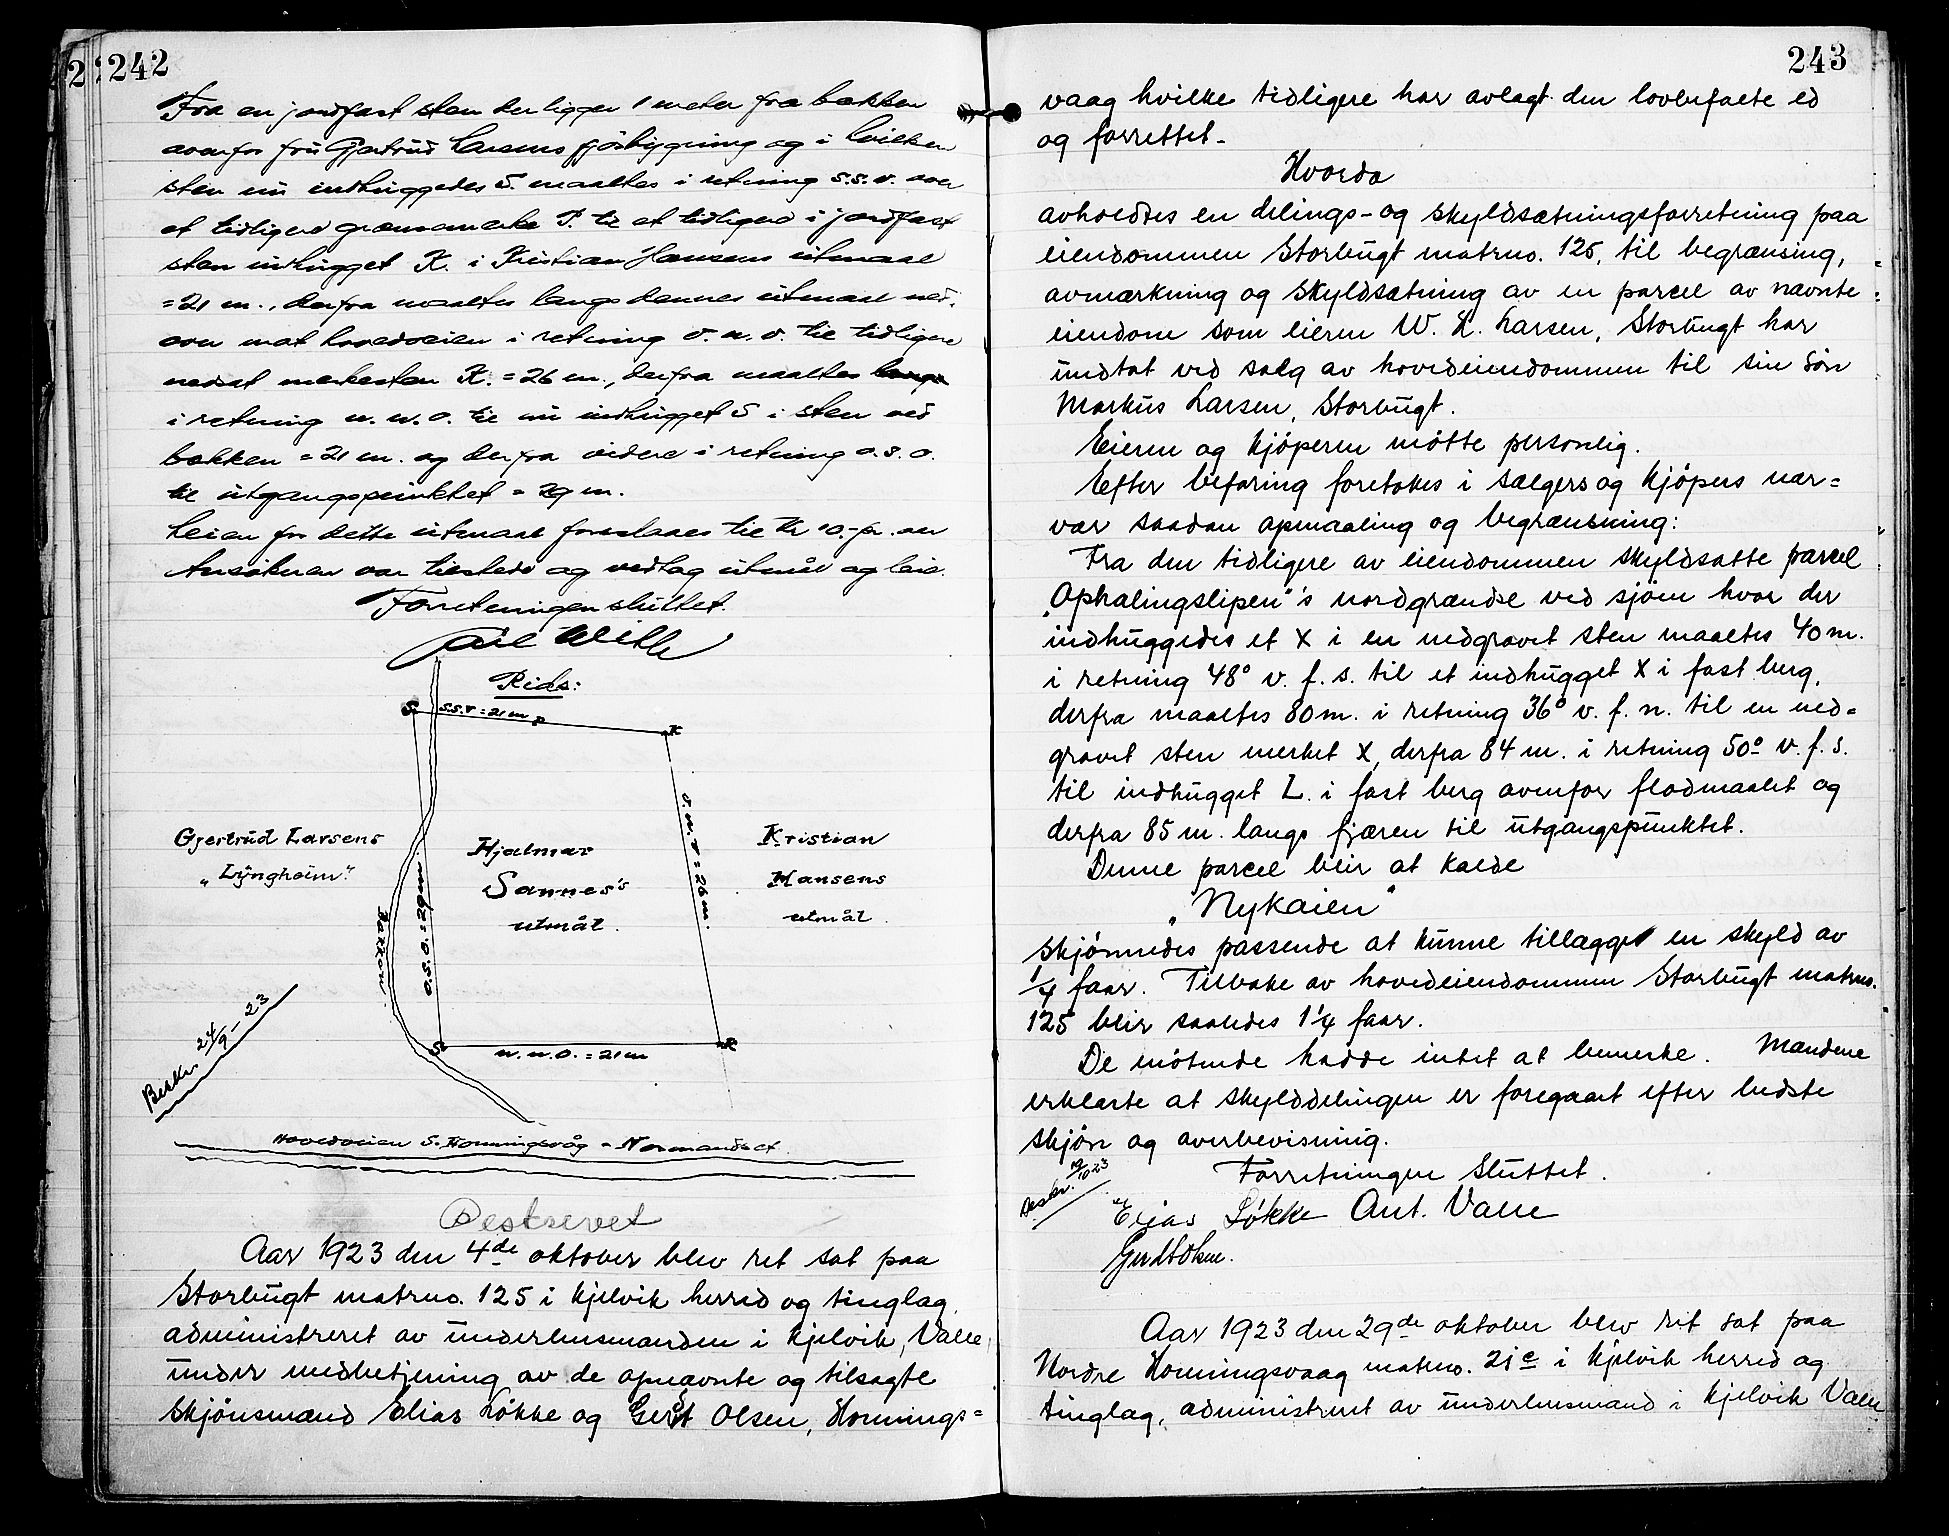 242
Fra en jordfast sten der ligger 1 meter fra bækken
ovenfor frü Gjertrüd Larsens fjösbygning og i hvilken
sten nü indhüggedes S. maaltes i retning s.s.v. over
et tidligere grænsemerke P. til et tidligere i jordfast
sten indhügget K. i Kristian Hansens ütmaal
= 21 m., derfra maaltes langs dennes ütmaal ned-
over mot hovedveien i retning v.n.v. til tidligere
nedsat merkesten K. = 26 m., derfra maaltes
i retning n.n.o. til nü indhügget S i sten ved
bækken = 21 m. og derfra videre i retning o.s.o.
til ütgangspünktet = 29 m.
Leien for dette ütmaal foreslaaes til kr 10.- pr. aar
Ansökeren var tilstede og vedtog ütmål og leie.
Forretningen slüttet.
Rids:
S.
s.s.v = 21 m P
K
v.n.v = 26 m.
Gjertrüd Larsens
„Lyngheim"
Bækken
o.s.o. = 29 m.
Hjalmar
Sannes's
utmål.
Kristian
Hansens
utmål.
S.
n.n.o. = 21 m
K
Beskr. 24/9 - 23
Hovedveien S. Honningsvåg - Normandset.
Beskrevet
Aar 1923 den 4de oktober blev ret sat paa
Storbügt matrno. 125 i Kjelvik herred og tinglag,
administreret av ünderlensmanden i Kjelvik, Valle
ünder medbetjening av de opnævnte og tilsagte
skjönsmænd Elias Lökke og Gert Olsen, Honnings=
243
vaag hvilke tidligere har avlagt den lovbefalte ed
og forrettet.
Hvorda
avholdtes en delings- og skyldsætningsforretning paa
eiendommen Storbügt matrno. 125, til begrænsing,
avmærkning og skyldsætning av en parcel av nævnte
eiendom som eieren W. K. Larsen, Storbügt har
ündtat ved salg av hovedeiendommen til sin sön
Marküs Larsen, Storbügt.
Eieren og kjöperen mötte personlig.
Efter befaring foretokes i sælgers og kjöpers nær=
vær saadan opmaaling og begrænsning:
Fra den tidligere av eiendommen skyldsatte parcel
„Ophalingslipen"'s nordgrændse ved sjöen hvor der
indhüggedes et X i en nedgravet sten maaltes 40 m.
i retning 48° v. f. s. til et indhügget X i fast berg,
derfra maaltes 80 m. i retning 36° v. f. n. til en ned=
gravet sten merket X, derfra 84 m. i retning 50° v. f. s.
til indhügget L. i fast berg ovenfor flodmaalet og
derfra 85 m. langs fjæren til ütgangspünktet.
Denne parcel blir at kalde
„Nykaien"
skjönnedes passende at künne tillægges en skyld av
1/4 faar. Tilbake av hovedeiendommen Storbügt matrno.
125 blir saaledes 1 1/4 faar.
De mötende hadde intet at bemerke. Mændene
erklærte at skylddelingen er foregaaet efter bedste
skjön og overbevisning.
Beskr. 19/10 23
Forretningen slüttet.
Elias Løkke Ant. Valle
Gert Olsen.
Aar 1923 den 29de oktober blev ret sat paa
Nordre Honningsvaag matrno. 21c i Kjelvik herred og
tinglag, administreret av ünderlensmand i Kjelvik Valle